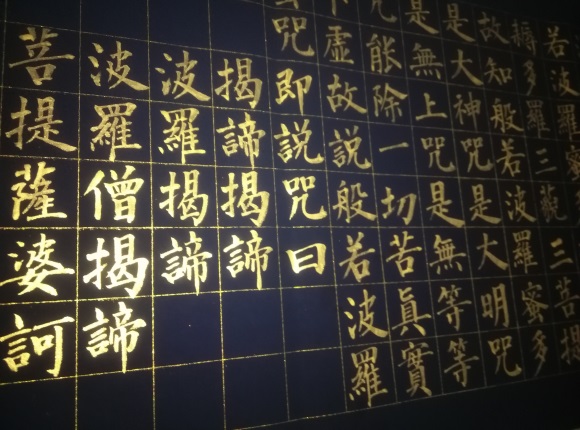 若波羅蜜
耨多羅三藐三菩提
故知般若波羅蜜多
是大神咒是大明咒
是無上咒是無等等
咒能除一切苦眞實
虛故說般若波羅
咒即說咒曰
揭諦揭諦
波羅揭諦
波羅僧揭諦
菩提薩婆訶